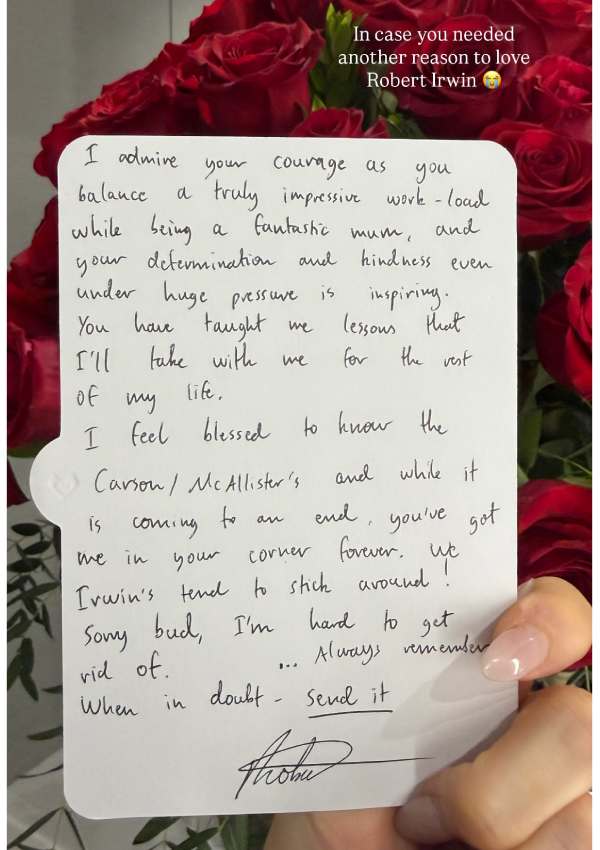 In case you needed
another reason to love
Robert Irwin 😭
I admire your courage as you
balance a truly impressive work-load
while being a fantastic mum, and
your determination and kindness even
under huge pressure is inspiring.
You have taught me lessons that
I'll take with me for the rest
of my life.
I feel blessed to know the
Carson/McAllister's and while it
is coming to an end, you've got
me in your corner forever. We
Irwin's tend to stick around!
Sorry bud, I'm hard to get
rid of. ... Always remember
When in doubt - send it
Robert